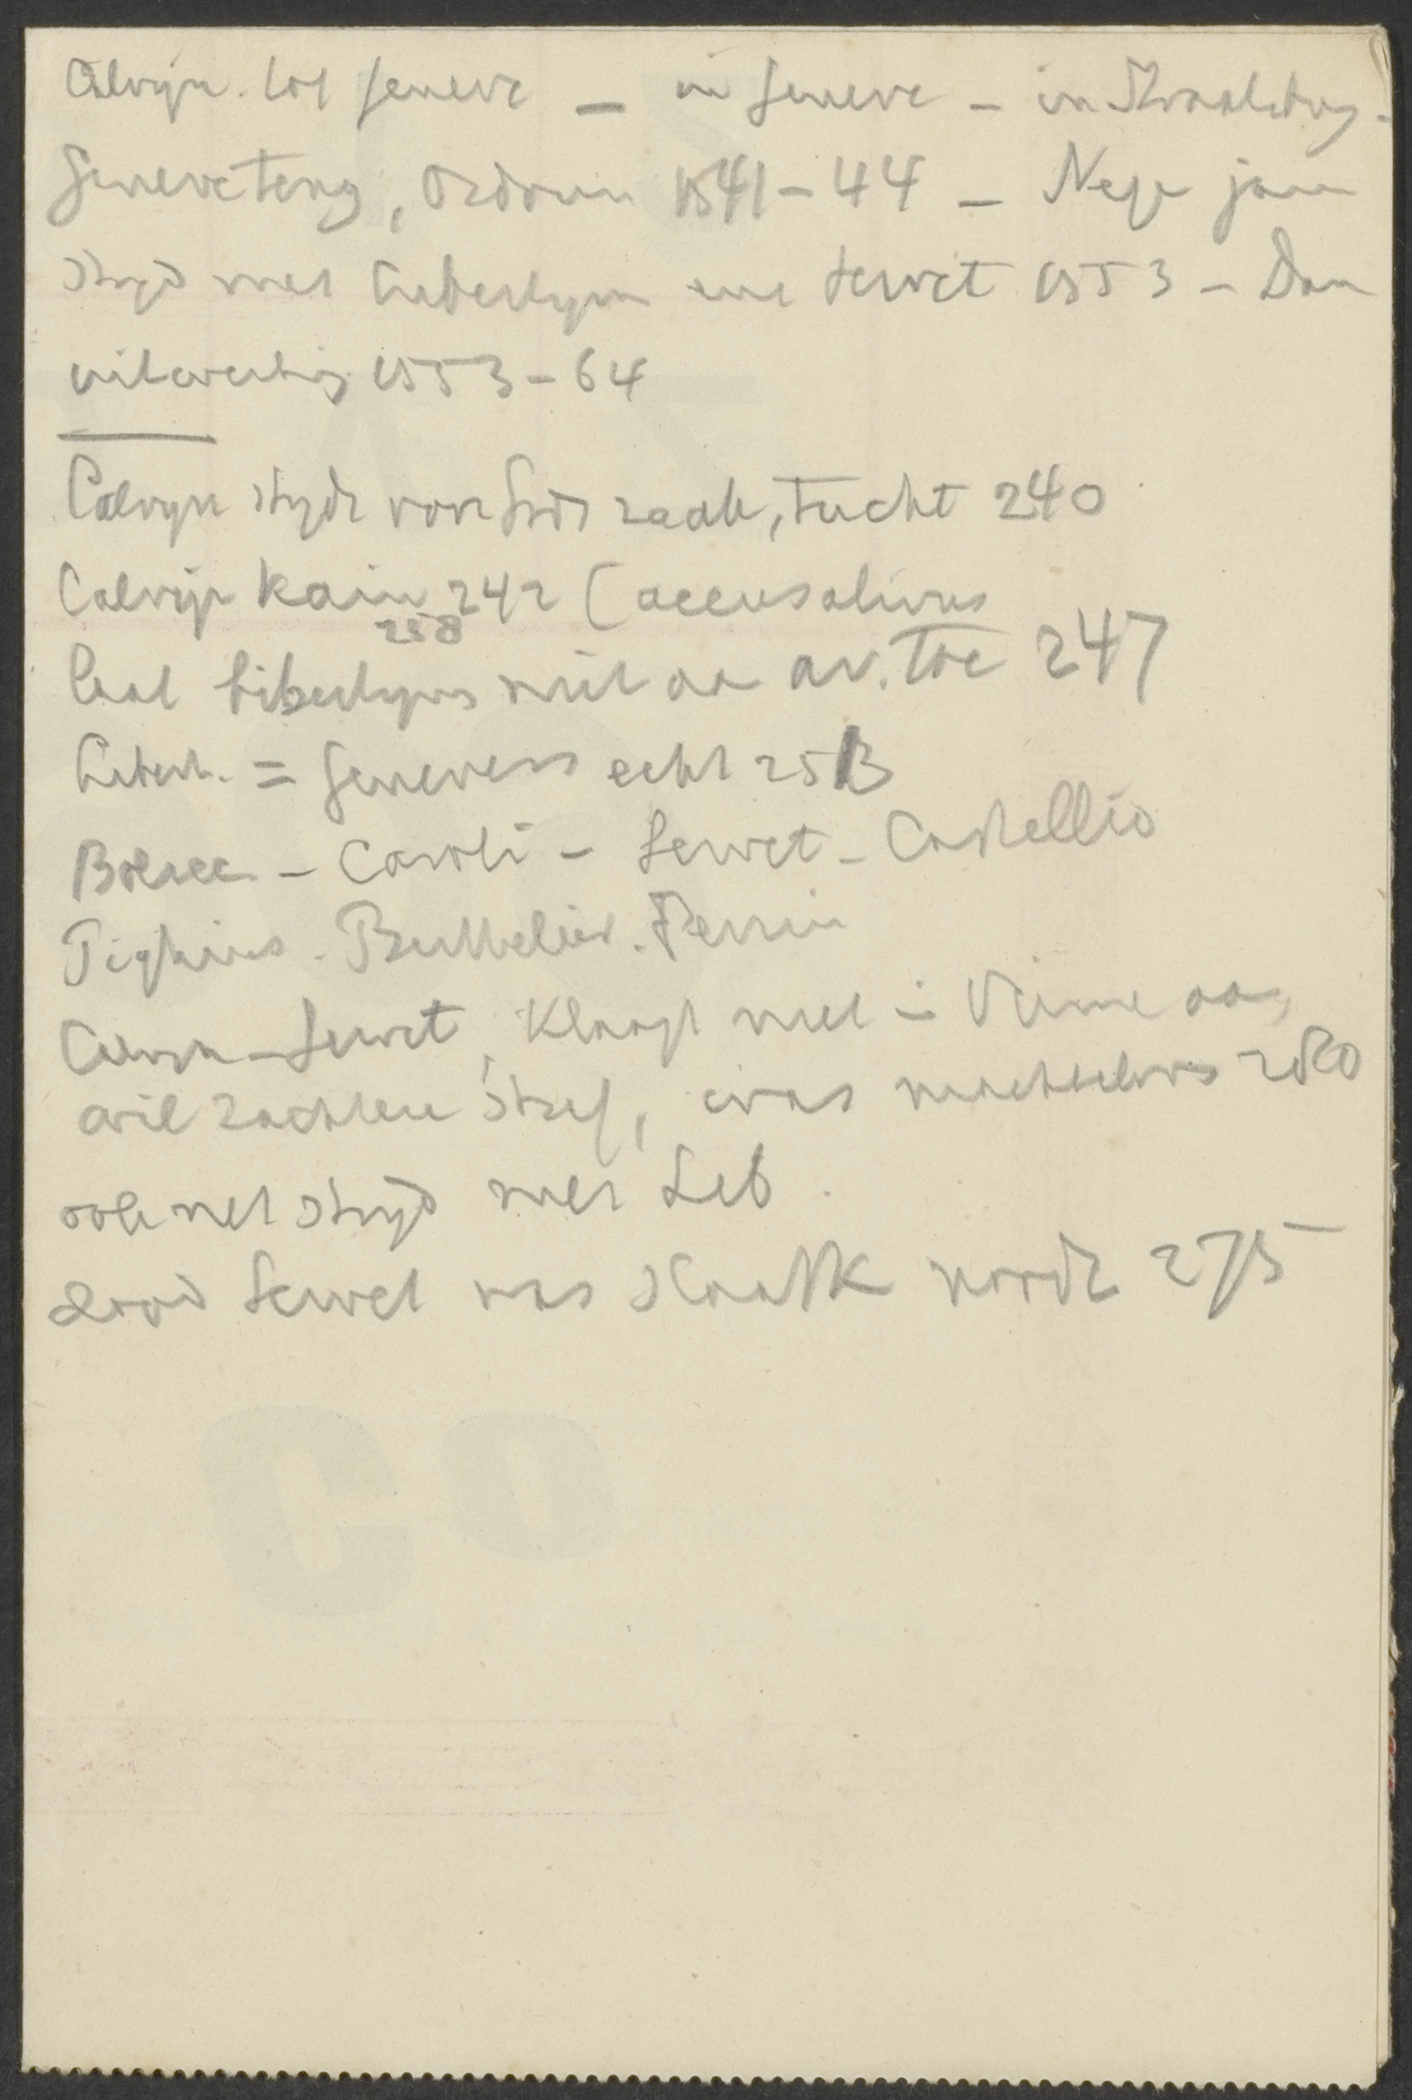 Calvijn. tot Geneve – in Geneve – in Straatsburg –
Geneve terug, Ordonn 1541–44 – Nege jaar
strijd met Libertijnen en Servet 1553 – Dan
uitwerking 1553–64
Calvyn strijdt voor Gods zaak, tucht 240
Calvijn Kain 242 (accusativus
258
laat libertijnen niet aan av. toe 247
Libert. = Genevers echt 253
Bolsec – Caroli – Servet – Castellio
Pighius. Berthelier. Perrin
Calvijn – Servet, Klaagt niet in Vienne aan,
wil zachtere straf, was machteloos 280
ook met strijd met Lib.
dood Servet was noodz 275